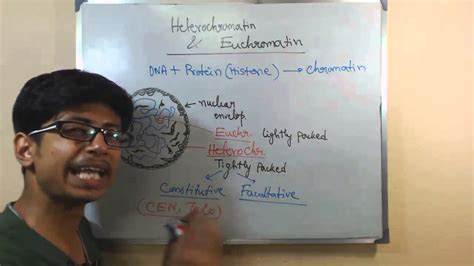 Heterochromatin
& Euchromatin
DNA + Protein (Histone) → Chromatin
nuclear
envelop
Euchr. lightly packed
Heterochr.
Tightly packed
Constitutive Facultative
(CEN, Telo)